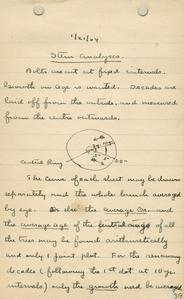 1/21/04
Stem Analyses.
Bolts are cut at fixed intervals.
Growth on Age is wanted. Decades are
laid off from the outside, and measured
from the centre outwards.
Central Ring
The curve of each sheet may be drawn
separately and the whole bunch averaged
by eye. Or else the average and
the average age of the central rings of all
the trees may be found arithmetically
and only 1 point plot. For the remaining
decades (following the 1st dot at 10 yr.
intervals) only the growth need be average